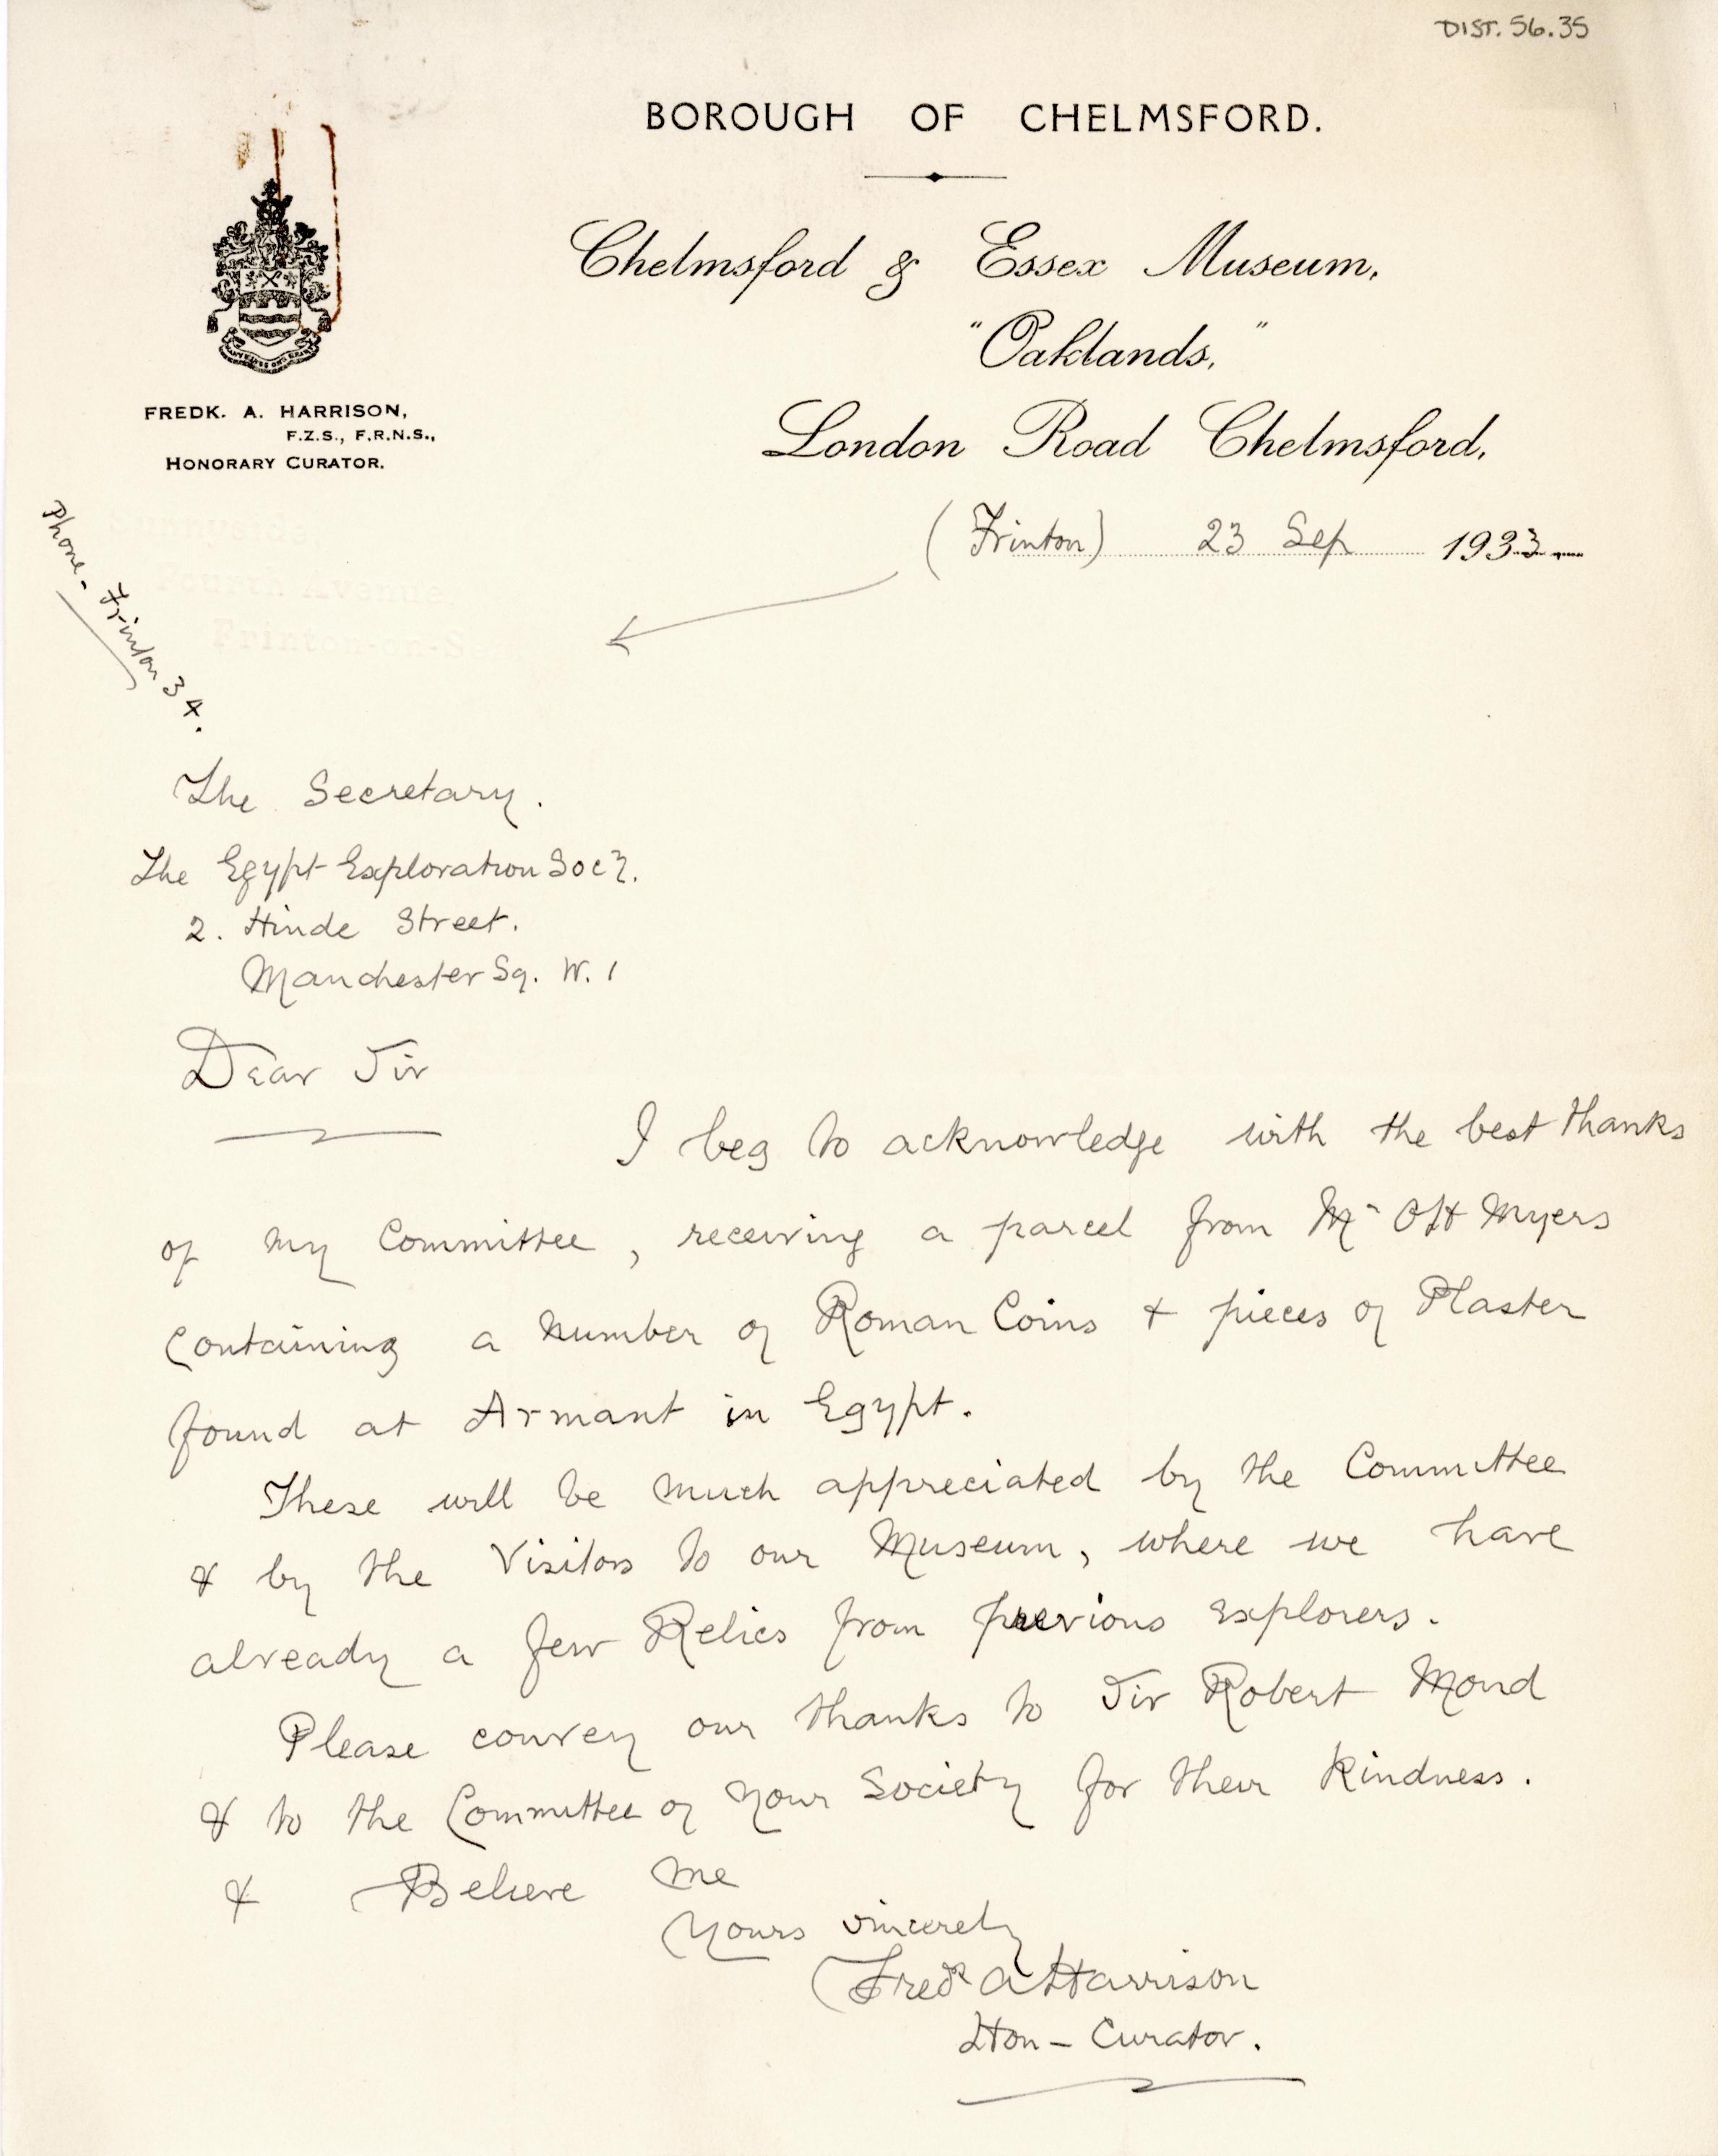 DIST. 56.35
BOROUGH OF CHELMSFORD.
Chelmsford & Essex Museum,
"Oaklands,"
London Road Chelmsford,
FREDK. A. HARRISON,
F.Z.S., F.R.N.S.,
HONORARY CURATOR.
(Frinton) 23 Sep 1933
Phone - Frinton 34.
Fourth Avenue,
Frinton-on-Se
The Secretary.
The Egypt Exploration Socy.
2. Hinde Street.
Manchester Sq. W. 1
Dear Sir
I beg to acknowledge with the best thanks
of my Committee, receiving a parcel from Mr OH Myers
containing a number of Roman Coins & pieces of Plaster
found at Armant in Egypt.
These will be much appreciated by the Committee
& by the Visitors to our Museum, where we have
already a few Relics from previous explorers.
Please convey our thanks to Sir Robert Mond
& to the Committee of your Society for their kindness.
& Believe me
Yours sincerely
Fredk A Harrison
Hon - Curator.